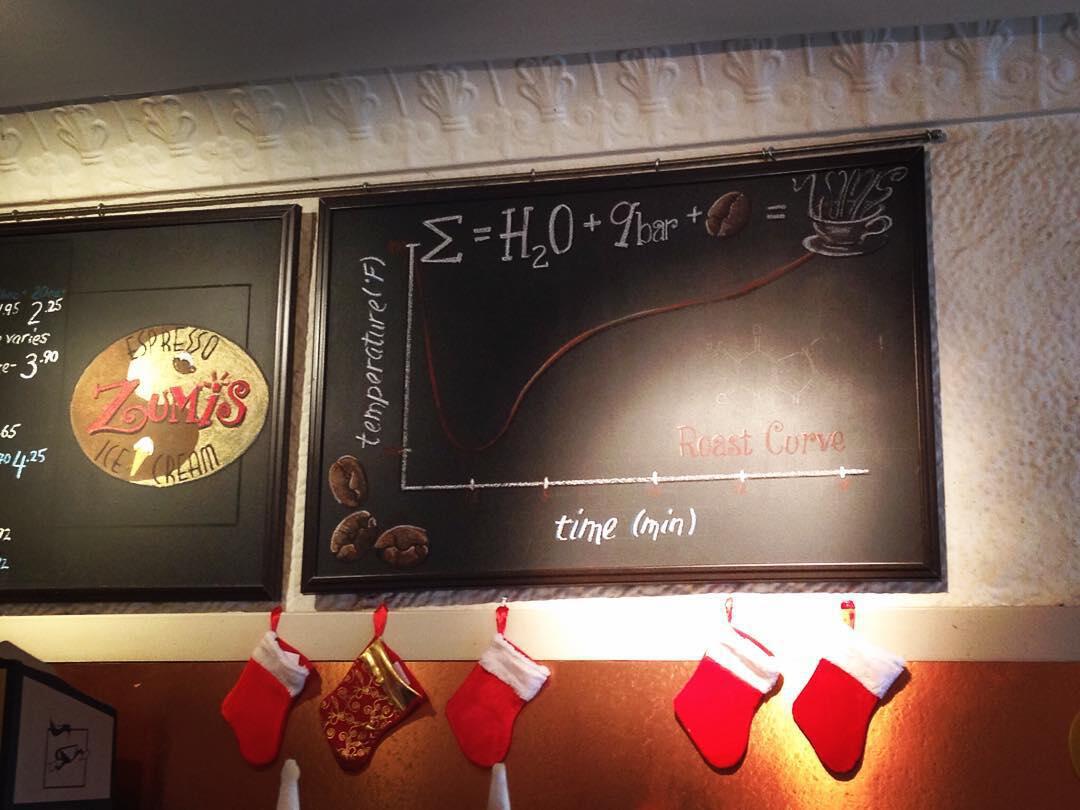 2.25
varies
3.90
.65
4.25
ESPRESSO
ZUMIS
ICE CREAM
Σ = H₂O + 9bar + =
temperature (°F)
Roast Curve
time (min)